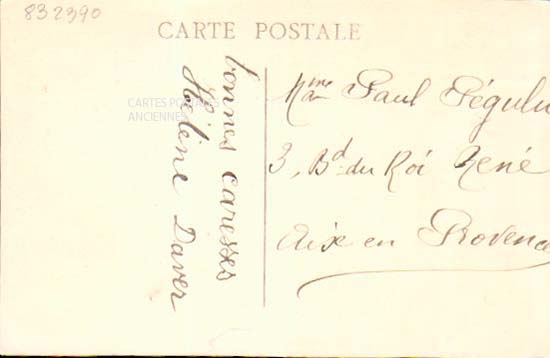 832390
CARTE POSTALE
CARTES POSTALES
ANCIENNES
bonnes caresses
Hélène Daver
Mme Paul
3, Bd du Roi René
Aix en Provence